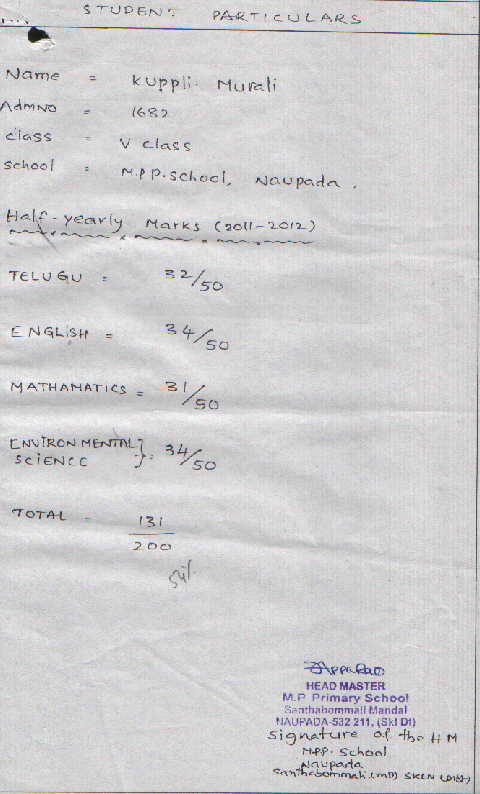 STUDENT PARTICULARS
Name = Kuppli. Murali
Admno = 1682
class = V class
school = M.P.P. school, Naupada.
Half-yearly Marks (2011-2012)
TELUGU = 32/50
ENGLISH = 34/50
MATHAMATICS = 31/50
ENVIRONMENTAL
SCIENCE } = 34/50
TOTAL = 131
200
HEAD MASTER
M.P. Primary School
Santhabommali Mandal
NAUPADA-532 211, (Skl Dt)
Signature of the HM
M.P.P. School
Naupada
Santhabommali (MD) SKLM (Dist)